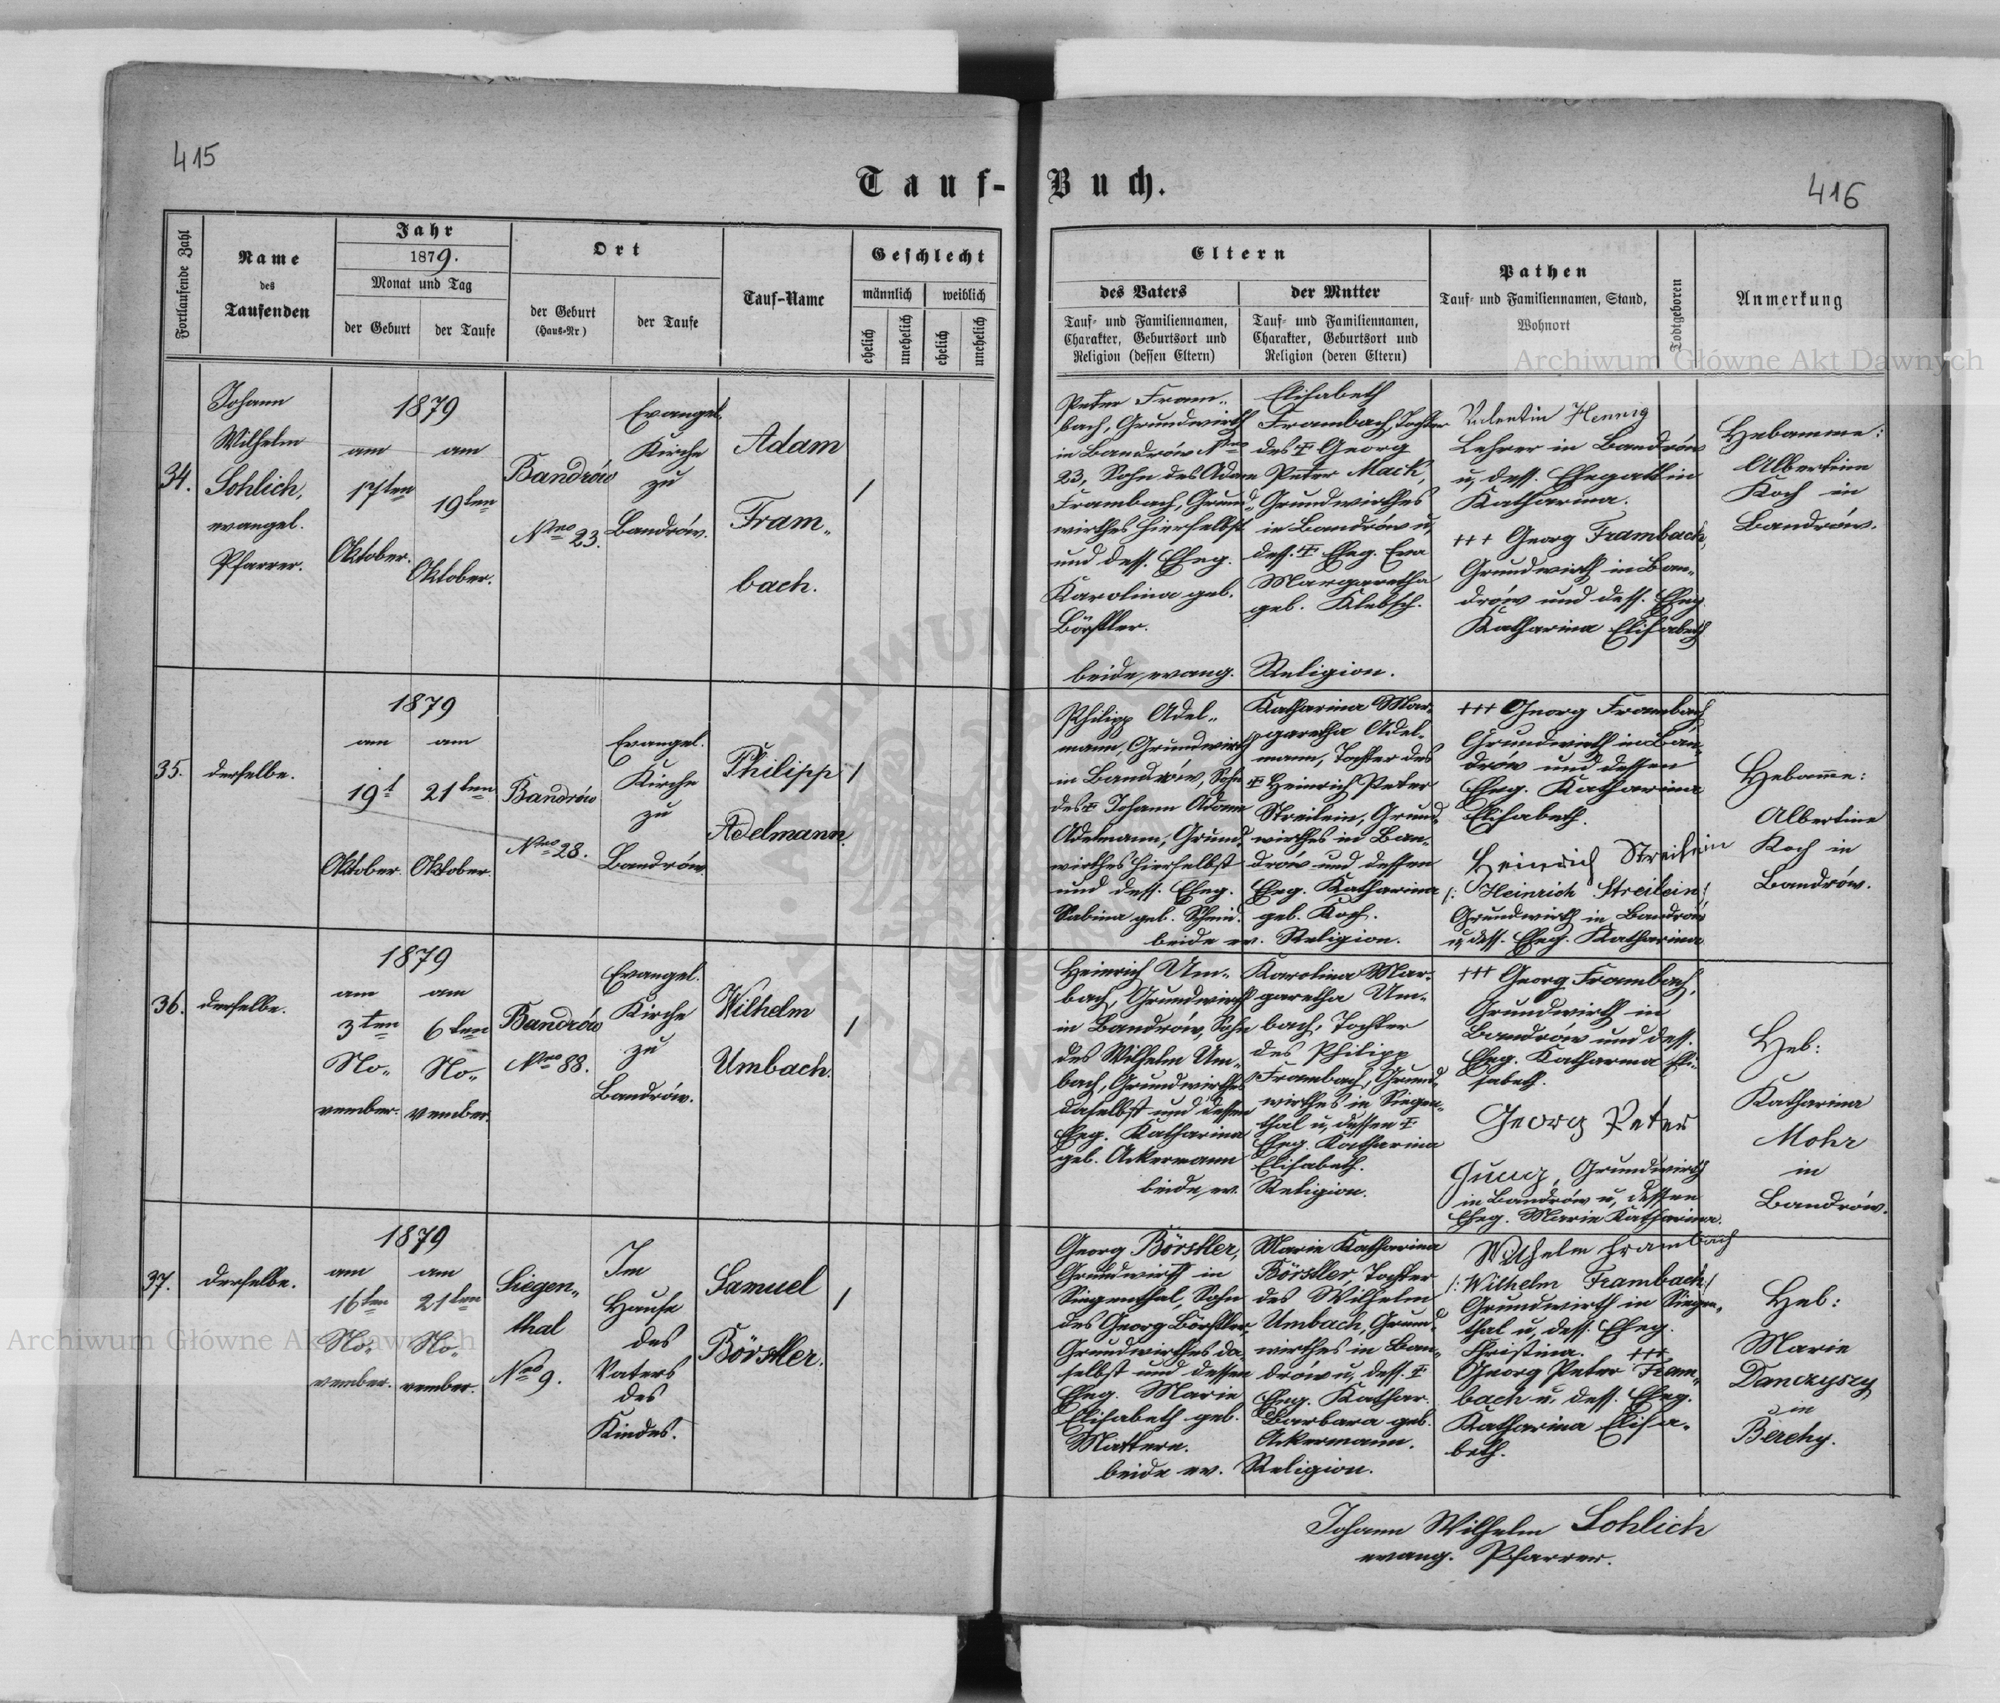 415
Tauf-Buch.
416
Fortlaufende Zahl
Name
des
Taufenden
Jahr
1879.
Monat und Tag
der Geburt
der Taufe
Ort
der Geburt
(Haus-Nr)
der Taufe
Tauf-Name
Geschlecht
männlich
weiblich
ehelich
unehelich
ehelich
unehelich
Eltern
des Vaters
Tauf- und Familiennamen,
Charakter, Geburtsort und
Religion (dessen Eltern)
der Mutter
Tauf- und Familiennamen,
Charakter, Geburtsort und
Religion (deren Eltern)
Pathen
Tauf- und Familiennamen, Stand,
Wohnort
Todtgeboren
Anmerkung
Archiwum Główne Akt Dawnych
34.
Johann
Wilhelm
Sohlich,
evangel.
Pfarrer.
1879
am
17ten
Oktober.
am
19ten
Oktober.
Bandrów
Nro 23.
Evangel.
Kirche
zu
Bandrów.
Adam
Fram„
bach.
/
Peter Fram„
bach, Grundwirth
in Bandrów Nro
23, Sohn des Adam
Frambach, Grund„
wirthes hierselbst
und dess. Eheg.
Karolina geb.
Börstler.
Elisabeth
Frambach, Tochter
des ✝ Georg
Peter Mack,
Grundwirthes
in Bandrów u,
dess. ✝ Eheg. Eva
Margaretha
geb. Klebsch.
beide evang. Religion.
Valentin Hennig
Lehrer in Bandrów
u, dess. Ehegattin
Katharina.
+++ Georg Frambach,
Grundwirth in Ban„
drów und dess. Eheg.
Katharina Elisabeth
Hebamme:
Albertine
Koch in
Bandrów.
35.
derselbe.
1879
am
19t
Oktober.
am
21ten
Oktober.
Bandrów
Nro 28.
Evangel.
Kirche
zu
Bandrów.
Philipp
Adelmann.
/
Philipp Adel„
mann, Grundwirth
in Bandrów, Sohn
des ✝ Johann Adam
Adelmann, Grund„
wirthes hierselbst
und dess. Eheg.
Sabina geb. Schmid.
Katharina Mar„
garetha Adel„
mann, Tochter des
✝ Heinrich Peter
Streilein, Grund„
wirthes in Ban„
drów und dessen
Eheg. Katharina
geb. Koch.
beide ev. Religion.
+++ Georg Frambach,
Grundwirth in Ban„
drow und dessen
Eheg. Katharina
Elisabeth.
Heinrich Streilein
/: Heinrich Streilein :/
Grundwirth in Bandrów
u, dess. Eheg. Katharina
Hebamme:
Albertine
Koch in
Bandrów.
36.
derselbe.
1879
am
3ten
No„
vember.
am
6ten
No„
vember.
Bandrów
Nro 88.
Evangel.
Kirche
zu
Bandrów.
Wilhelm
Umbach.
/
Heinrich Um„
bach, Grundwirth
in Bandrów, Sohn
des Wilhelm Um„
bach, Grundwirthes
daselbst und dessen
Eheg. Katharina
geb. Ackermann
Karolina Mar„
garetha Um„
bach, Tochter
des Philipp
Frambach, Grund„
wirthes in Siegen„
thal u, dessen ✝
Eheg. Katharina
Elisabeth.
beide ev. Religion.
+++ Georg Frambach,
Grundwirth in
Bandrów und dess.
Eheg. Katharina Eli„
sabeth.
Georg Peter
Jung, Grundwirth
in Bandrów u, dessen
Eheg. Marie Katharina.
Heb:
Katharina
Mohr
in
Bandrów.
37.
derselbe.
1879
am
16ten
No„
vember.
am
21ten
No„
vember.
Siegen„
thal
Nro 9.
Im
Hause
des
Vaters
des
Kindes.
Samuel
Börstler.
/
Georg Börstler,
Grundwirth in
Siegenthal, Sohn
des Georg Börstler,
Grundwirthes da„
selbst und dessen
Eheg. Marie
Elisabeth geb.
Mattern.
Marie Katharina
Börstler, Tochter
des Wilhelm
Umbach, Grund„
wirthes in Ban„
drów u, dess. ✝
Eheg. Kathar.
Barbara geb.
Ackermann.
beide ev. Religion.
Wilhelm Frambach
/: Wilhelm Frambach :/
Grundwirth in Siegen„
thal u, dess. Eheg.
Christina. +++
Georg Peter Fram„
bach u. dess. Eheg.
Katharina Elisa„
beth.
Heb:
Marie
Danczyszy
in
Berehy.
Archiwum Główne Akt Dawnych
Johann Wilhelm Sohlich
evang. Pfarrer.